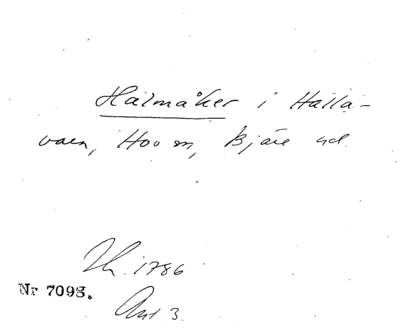 Halmåker i Halla-
varn, Hov sn, Bjäre hd.
Ih. 1786
Nr 7093.
Akt 3